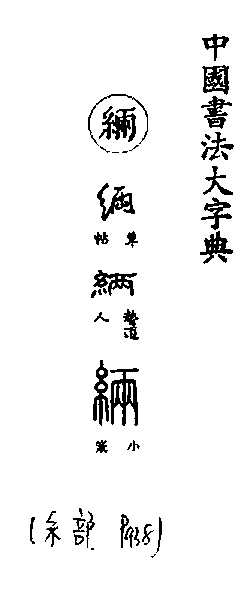 中國書法大字典
緉
緉
草帖
緉
緉
小篆
(糸部